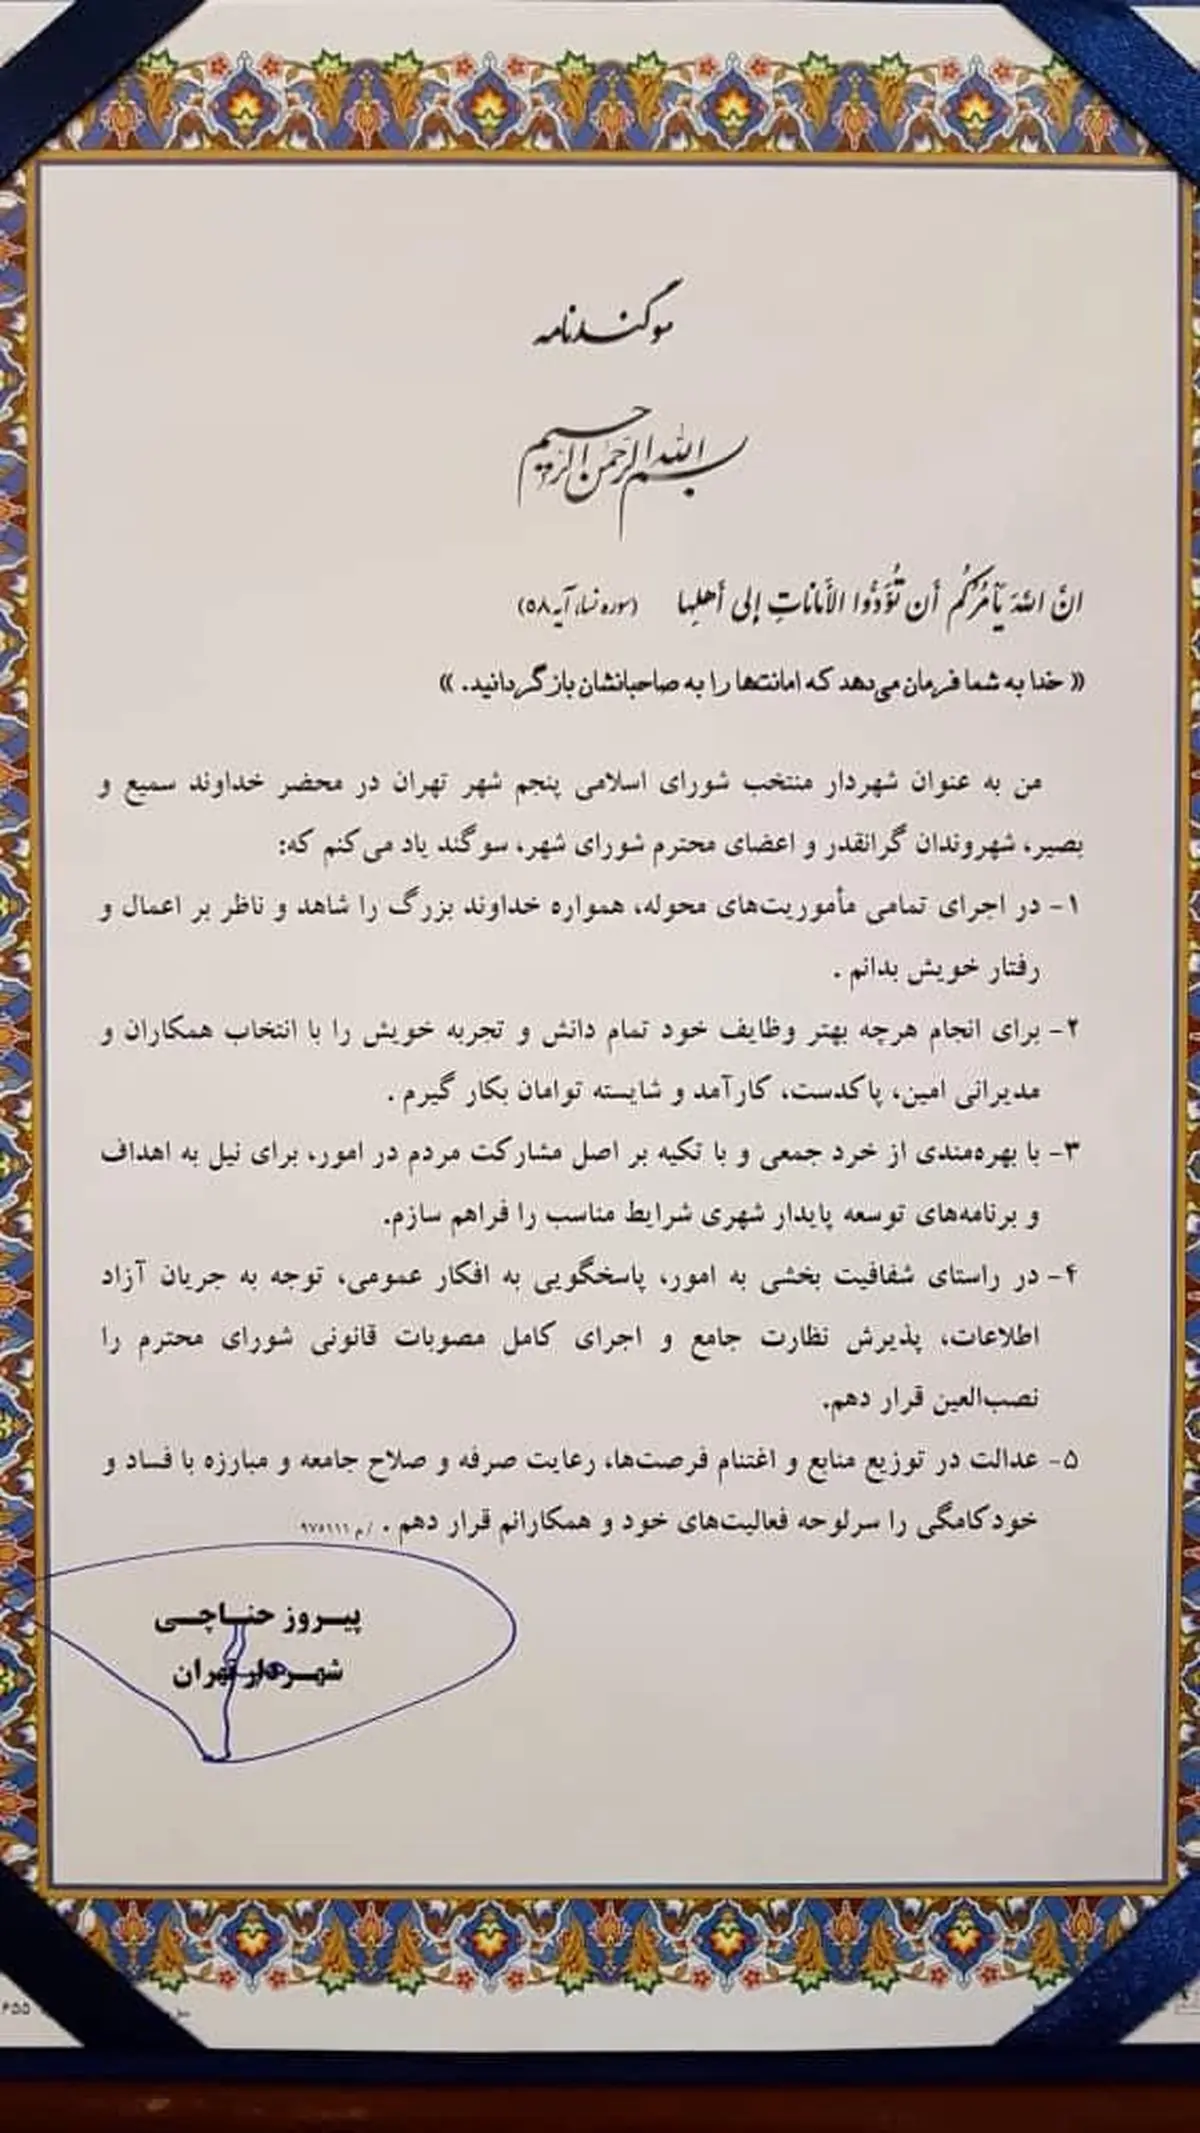 سوگندنامه
بسم الله الرحمن الرحیم
انَّ اللهَ یَأمُرُکُم أن تُؤَدُّوا الأمَاناتِ إلی أهلِها (سوره نساء، آیه ۵۸)
« خدا به شما فرمان می‌دهد که امانت‌ها را به صاحبانشان بازگردانید. »
من به عنوان شهردار منتخب شورای اسلامی پنجم شهر تهران در محضر خداوند سمیع و
بصیر، شهروندان گرانقدر و اعضای محترم شورای شهر، سوگند یاد می‌کنم که:
۱- در اجرای تمامی مأموریت‌های محوله، همواره خداوند بزرگ را شاهد و ناظر بر اعمال و
رفتار خویش بدانم .
۲- برای انجام هرچه بهتر وظایف خود تمام دانش و تجربه خویش را با انتخاب همکاران و
مدیرانی امین، پاکدست، کارآمد و شایسته توامان بکار گیرم .
۳- با بهره‌مندی از خرد جمعی و با تکیه بر اصل مشارکت مردم در امور، برای نیل به اهداف
و برنامه‌های توسعه پایدار شهری شرایط مناسب را فراهم سازم.
۴- در راستای شفافیت بخشی به امور، پاسخگویی به افکار عمومی، توجه به جریان آزاد
اطلاعات، پذیرش نظارت جامع و اجرای کامل مصوبات قانونی شورای محترم را
نصب‌العین قرار دهم.
۵- عدالت در توزیع منابع و اغتنام فرصت‌ها، رعایت صرفه و صلاح جامعه و مبارزه با فساد و
خودکامگی را سرلوحه فعالیت‌های خود و همکارانم قرار دهم . /م ۹۷۵۱۱۱
پیروز حناچی
شهردار تهران